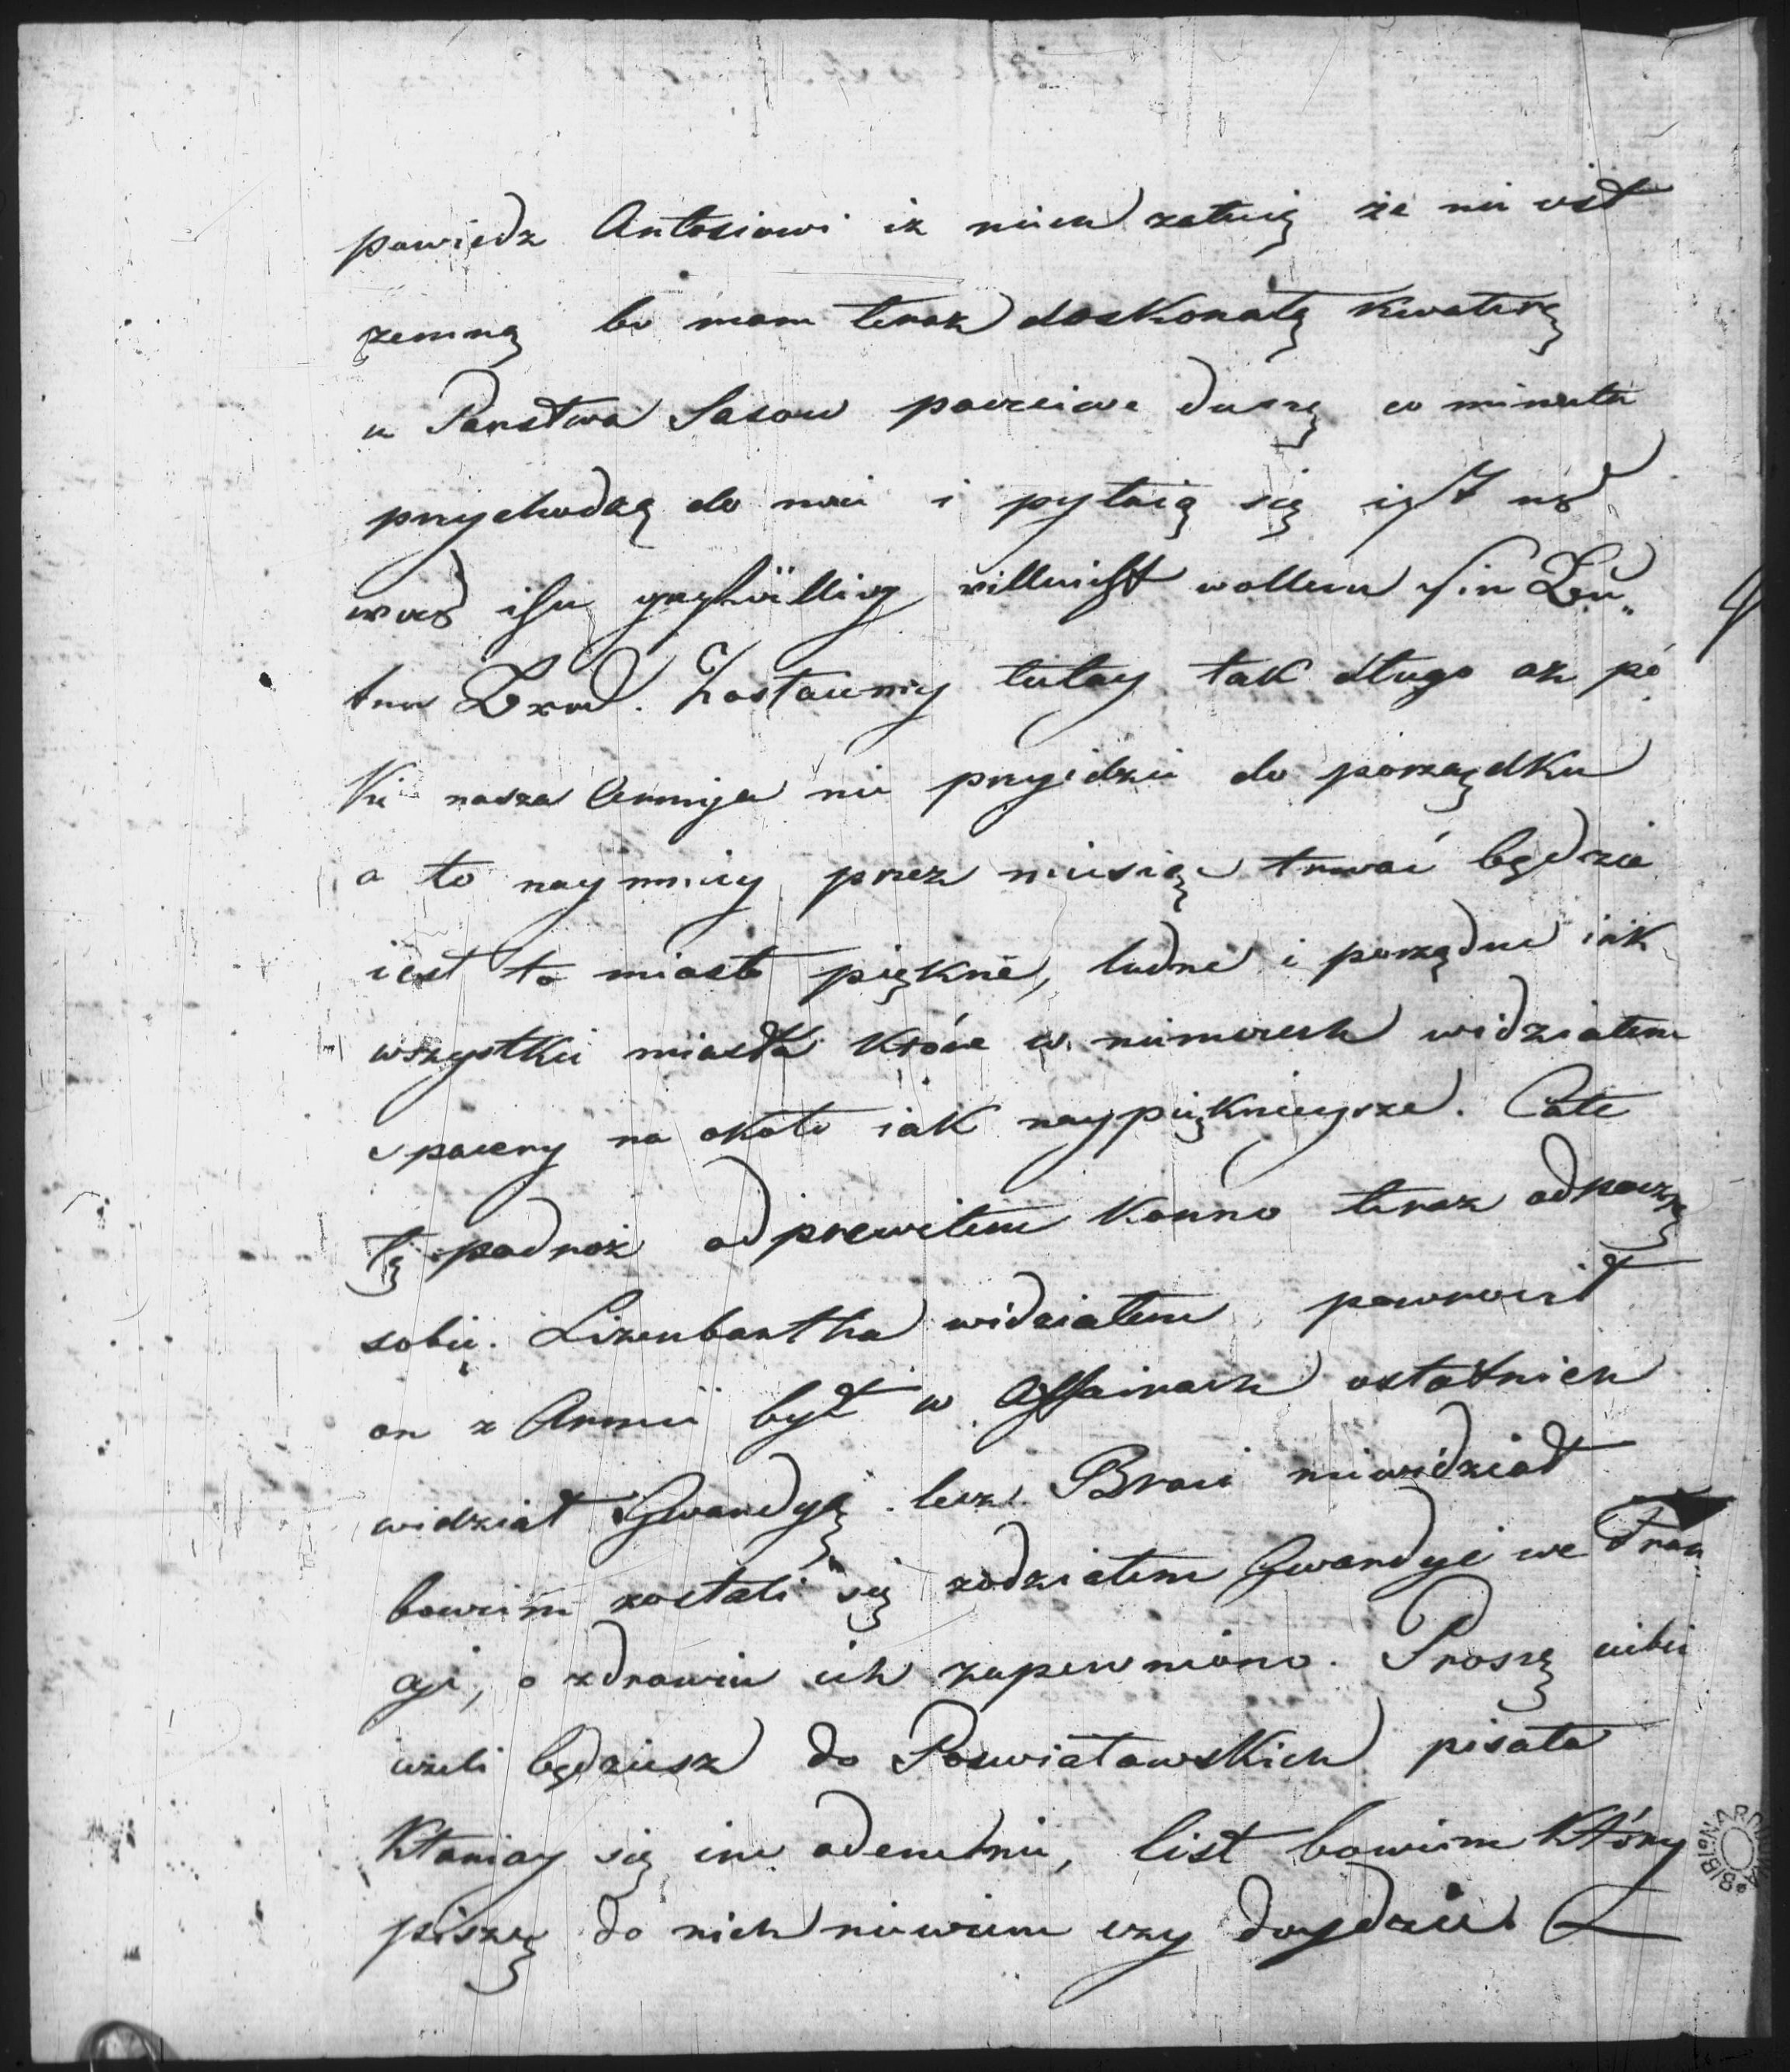 powiedz Antosiowi iż niech załuię że nie iest
zemną bo mam teraz doskonałą kwaterę
u Państwa Sasow poczciwe duszę co minuta
przychodzą do mnie i pytaią się ist es
was ihn gefällig villeicht wollen sie Bu„
ter Brod. Zostaniemy tutay tak długo aż pó
ki nasza Armija nie przyidzie do porządku
a to naymniey przez miesiąc trwać będzie
iest to miasto piękne, ludne i porządne iak
wszystkie miasta które w niemczech widziałem
spacery na około iak naypięknieysze. Całe
tę podroż odprawiłem konno teraz odpoczne
sobie. Lizenbartha widziałem, powrocił
on z Armii był w Affairach ostatnich
widział Gwardyą lecz Braci niewidział
bowiem zostali się zodziałem Gwardyi we Fran
cji, o zdrowiu ich zapewniono. Proszę ciebie
ieżeli będziesz do Poswiatowskich pisała
kłaniay się im odemnie, list bowiem który
piszę do nich niewiem czy doydzie.
4
BIBLIOTEKA NARODOWA